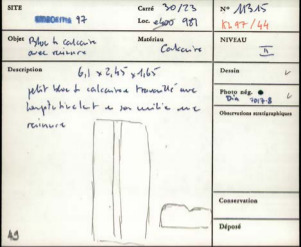 SITE
97
Carré 30/23
Loc. 981
N° 11315
KL97/44
Objet Bloc de calcaire
avec rainure
Matériau
Calcaire
NIVEAU
Dessin
Description
6,1 x 2,45 x 1,65
petit bloc de calcaire travaillé avec
rainure
Photo nég.
Dia 7017-8
Observations stratigraphiques
Conservation
Déposé